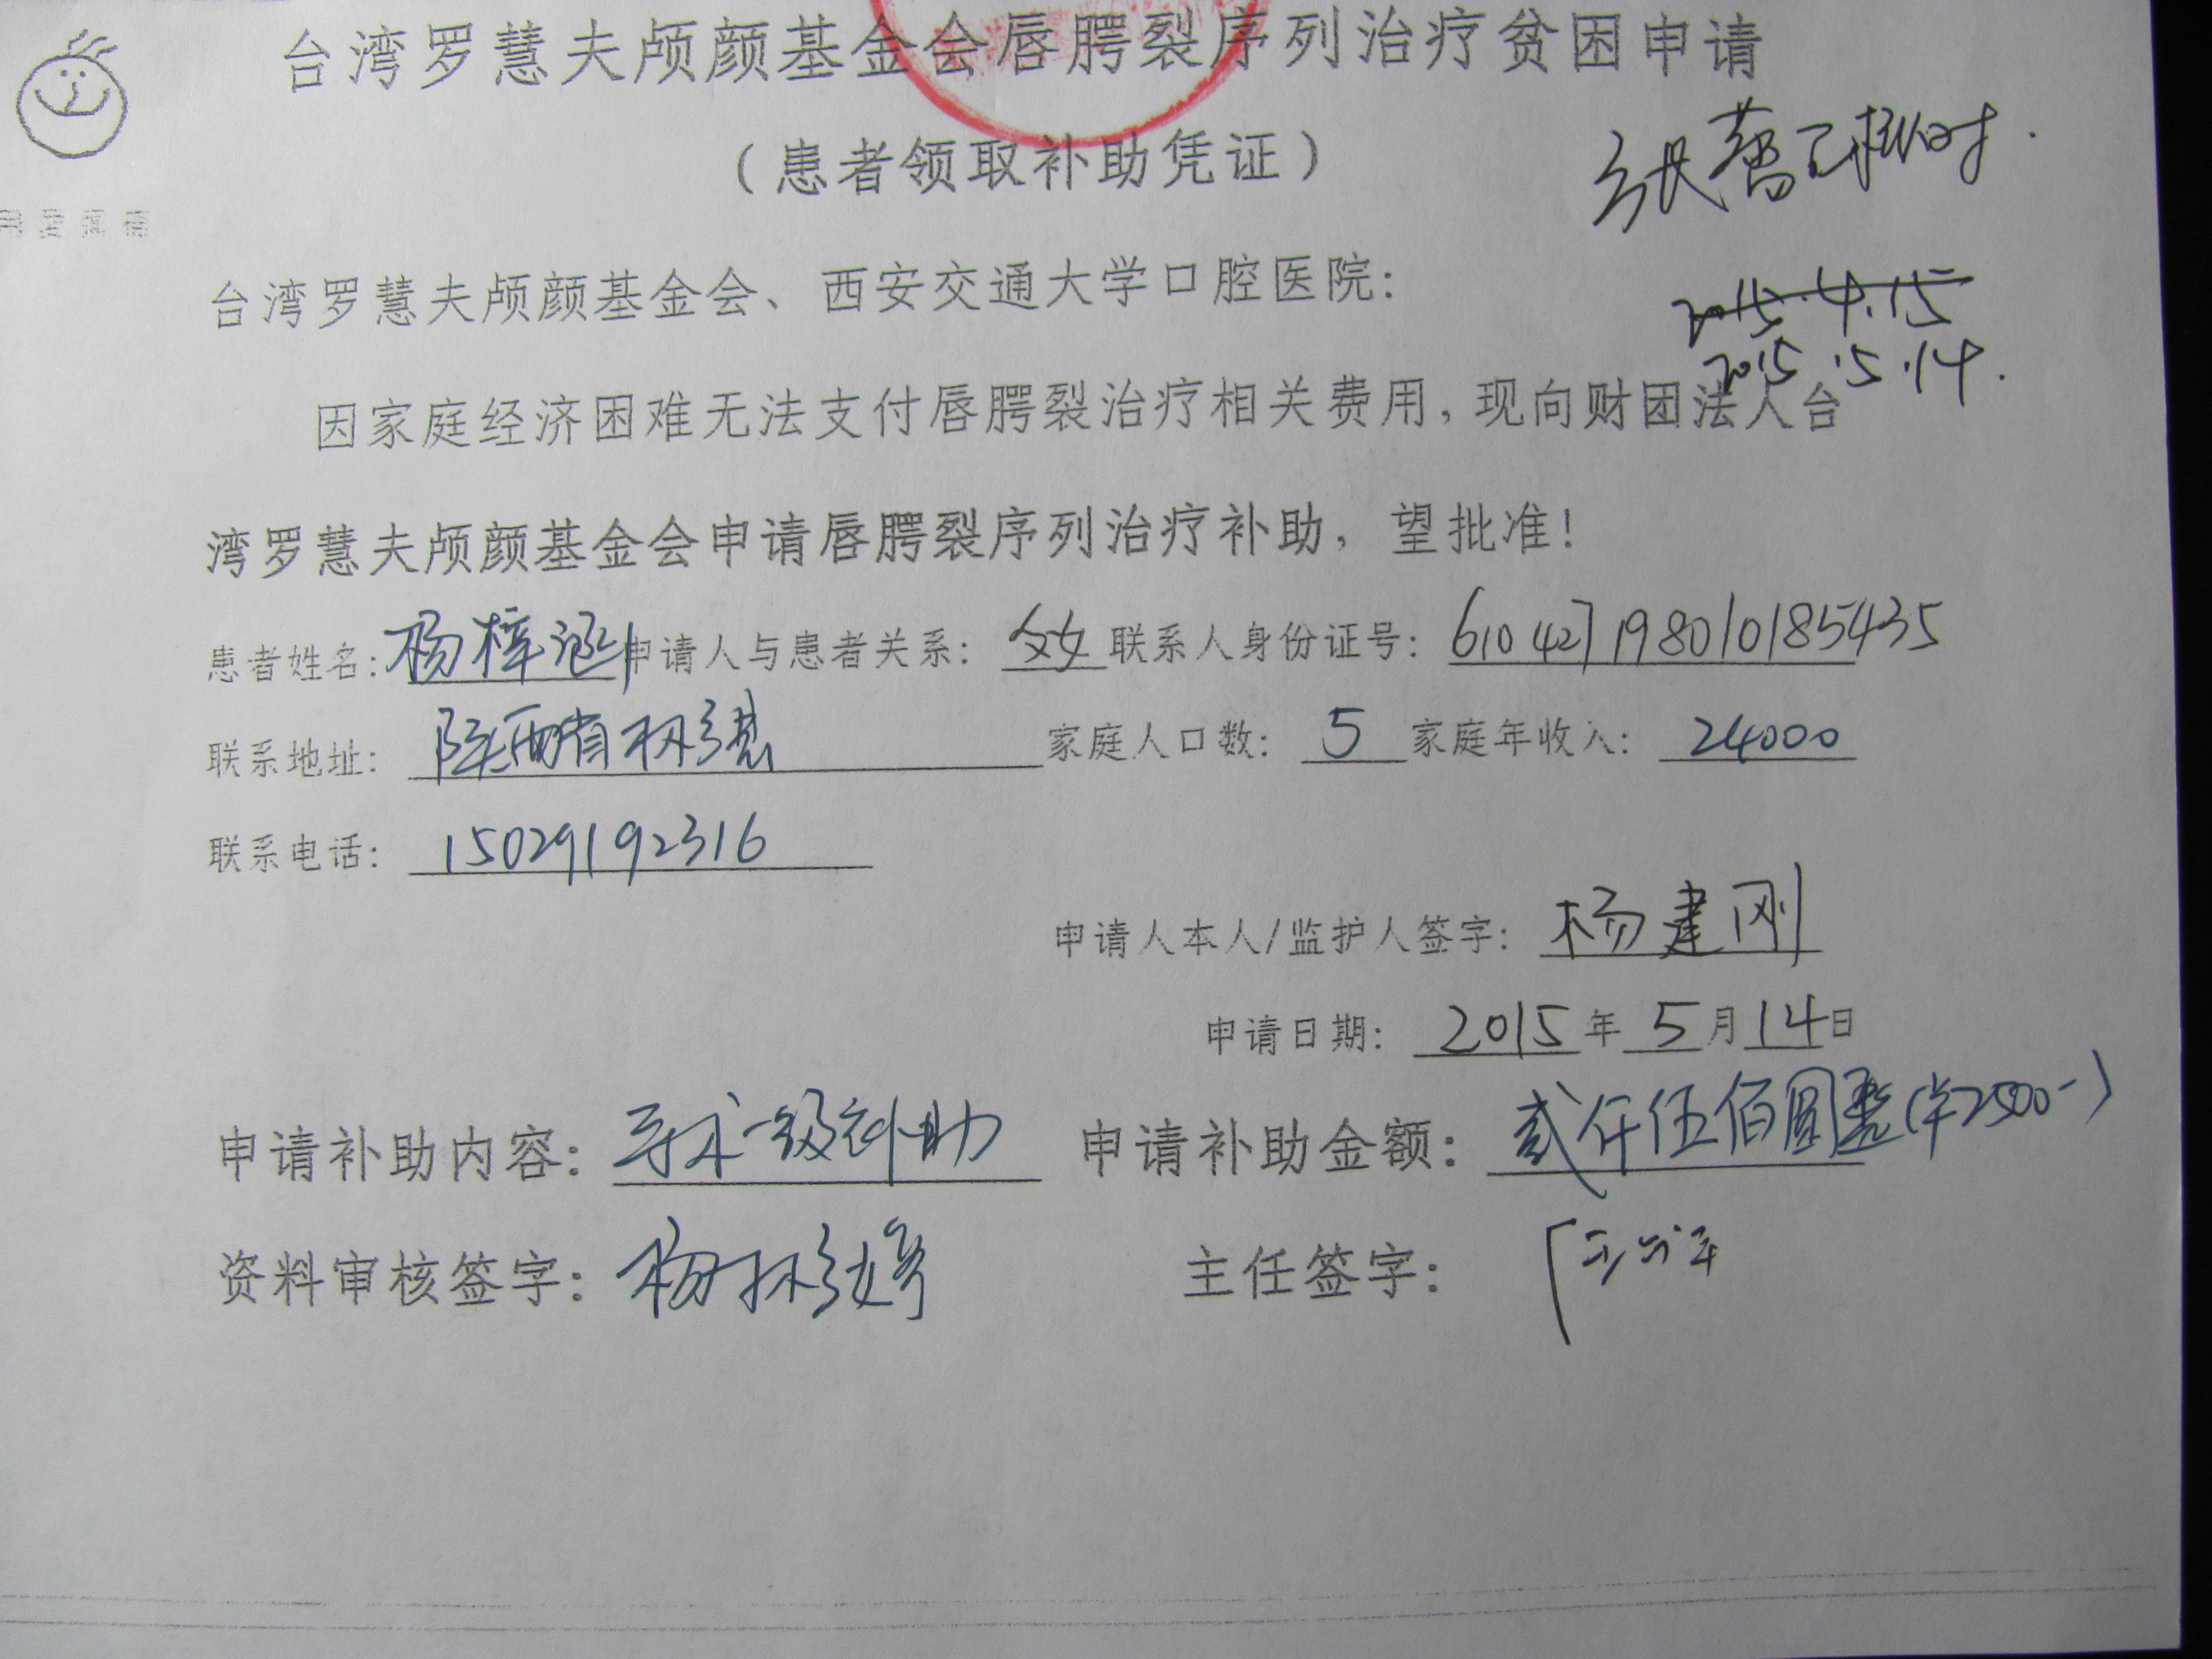 台湾罗慧夫颅颜基金会唇腭裂序列治疗贫困申请
（患者领取补助凭证）
张蕾已核对.
台湾罗慧夫颅颜基金会、西安交通大学口腔医院：
2015.4.15
2015.5.14.
因家庭经济困难无法支付唇腭裂治疗相关费用，现向财团法人台
湾罗慧夫颅颜基金会申请唇腭裂序列治疗补助，望批准！
患者姓名：杨梓涵 申请人与患者关系：父女 联系人身份证号：610427198010185435
联系地址：陕西省杨凌 家庭人口数：5 家庭年收入：24000
联系电话：15029192316
申请人本人/监护人签字：杨建刚
申请日期：2015年5月14日
申请补助内容：手术一级补助 申请补助金额：贰仟伍佰圆整(¥2500-)
资料审核签字：杨 主任签字：